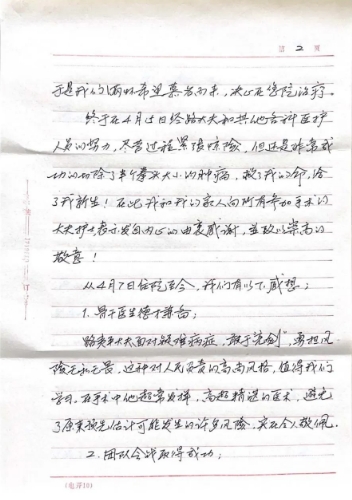 第 2 页
于是我们满怀希望慕名而来，决心在贵院治疗。
终于在4月15日经路大夫和其他各科医护
人员的努力，尽管过程累续惊险，但还是非常成
功的切除了半个拳头大小的肿瘤，救了我的命，给
了我新生！在此我和我的家人向所有参加手术的
大夫护士表示发自内心的由衷感谢，并致以崇高的
敬意！
从4月7日住院至今，我们有以下感想：
1. 医生德才兼
大夫面对疑难病症，敢于"亮剑"，勇担风
险无私无畏，这种对人民负责的高尚风格，值得我们
学习。在手术中他超常发挥，高超精湛的医术，避免
了原来预先估计可能发生的许多风险，实在令人敬佩。
2. 团队合作取得成功：